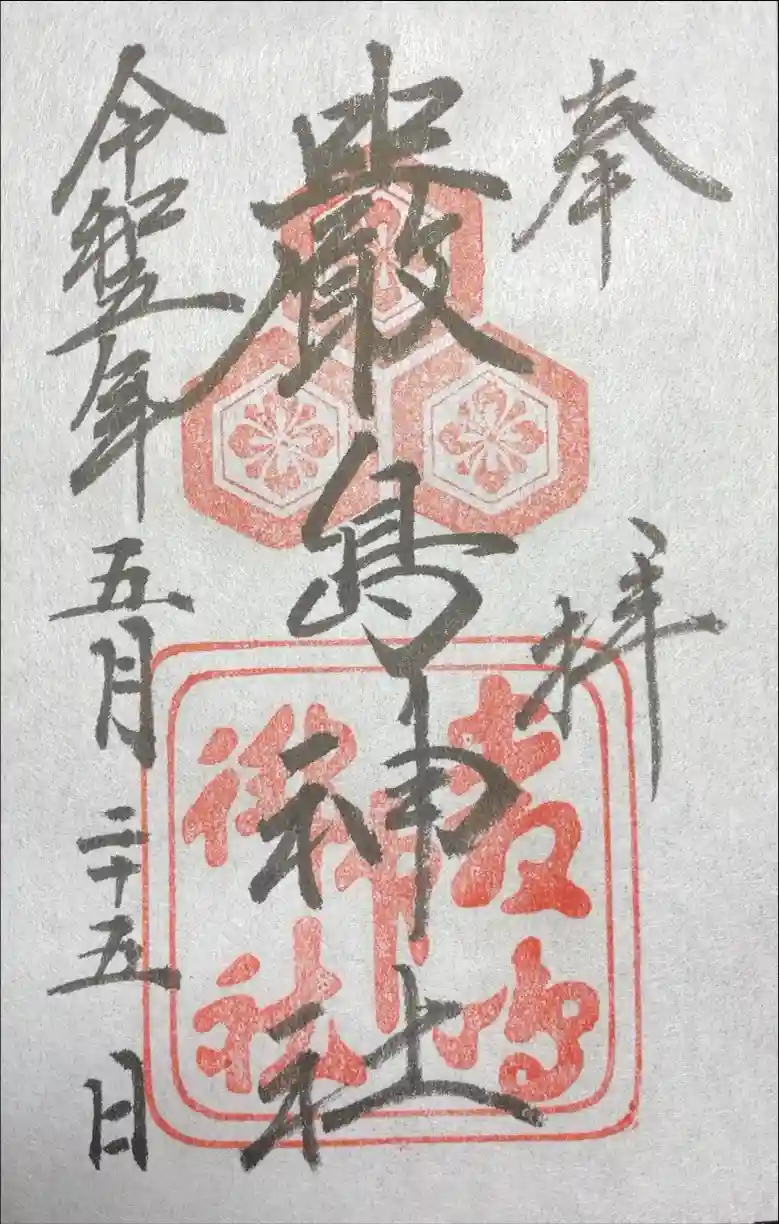 奉拝
嚴島神社
令和五年
五月二十五日